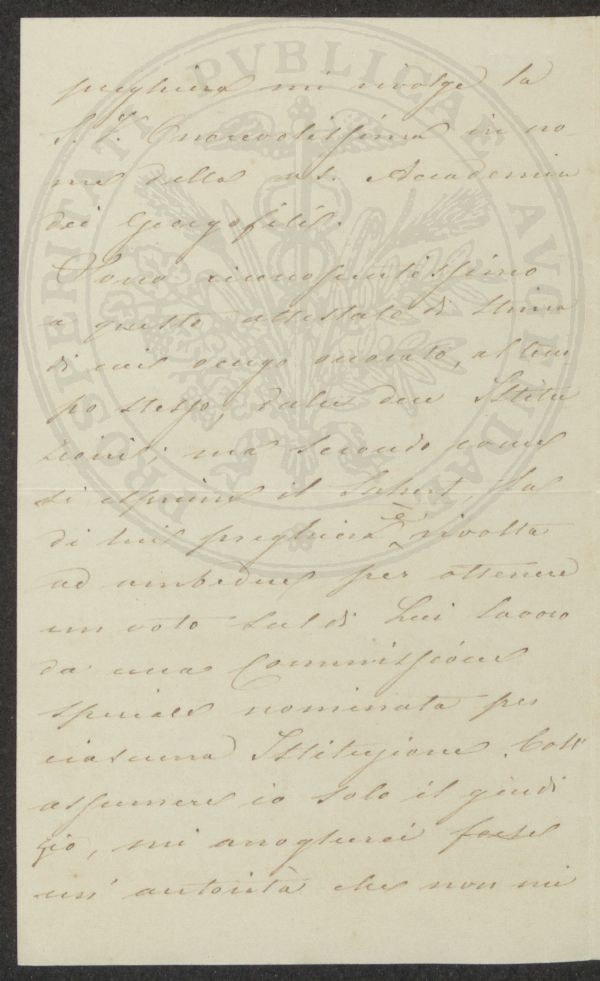 PROSPERITATI PVBLICAE AVGENDAE
preghiera mi rivolge la
S. V. Onorevolissima in no-
me della R. Accademia
dei Georgofili.
Sono riconoscentissimo
a questo attestato di stima
di cui vengo onorato, al tem
po stesso, dalle due Istitu
zioni; ma secondo come
si esprime il la
di lui preghiera è rivolta
ad ambedue per ottenere
un voto sul di Lui lavoro
da una Commissione
speciale nominata per
ciascuna Istituzione. Coll'
assumere io solo il giudi
zio, mi arrogherei forse
un' autorità che non mi